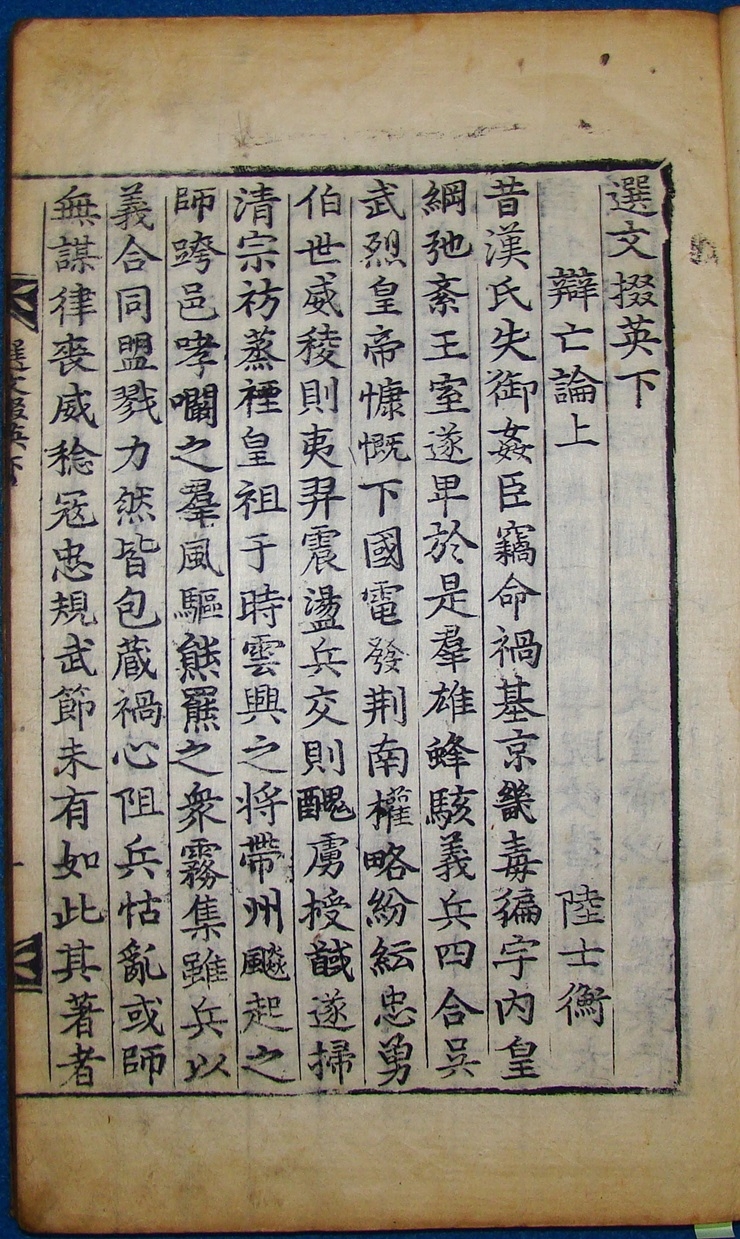 選文掇英下
辯亡論上 陸士衡
昔漢氏失御姦臣竊命禍基京畿毒徧宇内皇
綱弛紊王室遂卑於是羣雄蜂駭義兵四合吳
武烈皇帝慷慨下國電發荆南權略紛紜忠勇
伯世威稜則夷羿震盪兵交則醜虜授馘遂掃
清宗祊蒸禋皇祖于時雲興之将帶州飈起之
師跨邑哮闞之羣風驅熊羆之衆霧集雖兵以
義合同盟戮力然皆包藏禍心阻兵怙亂或師
無謀律喪威稔寇忠規武節未有如此其著者
選文掇英下